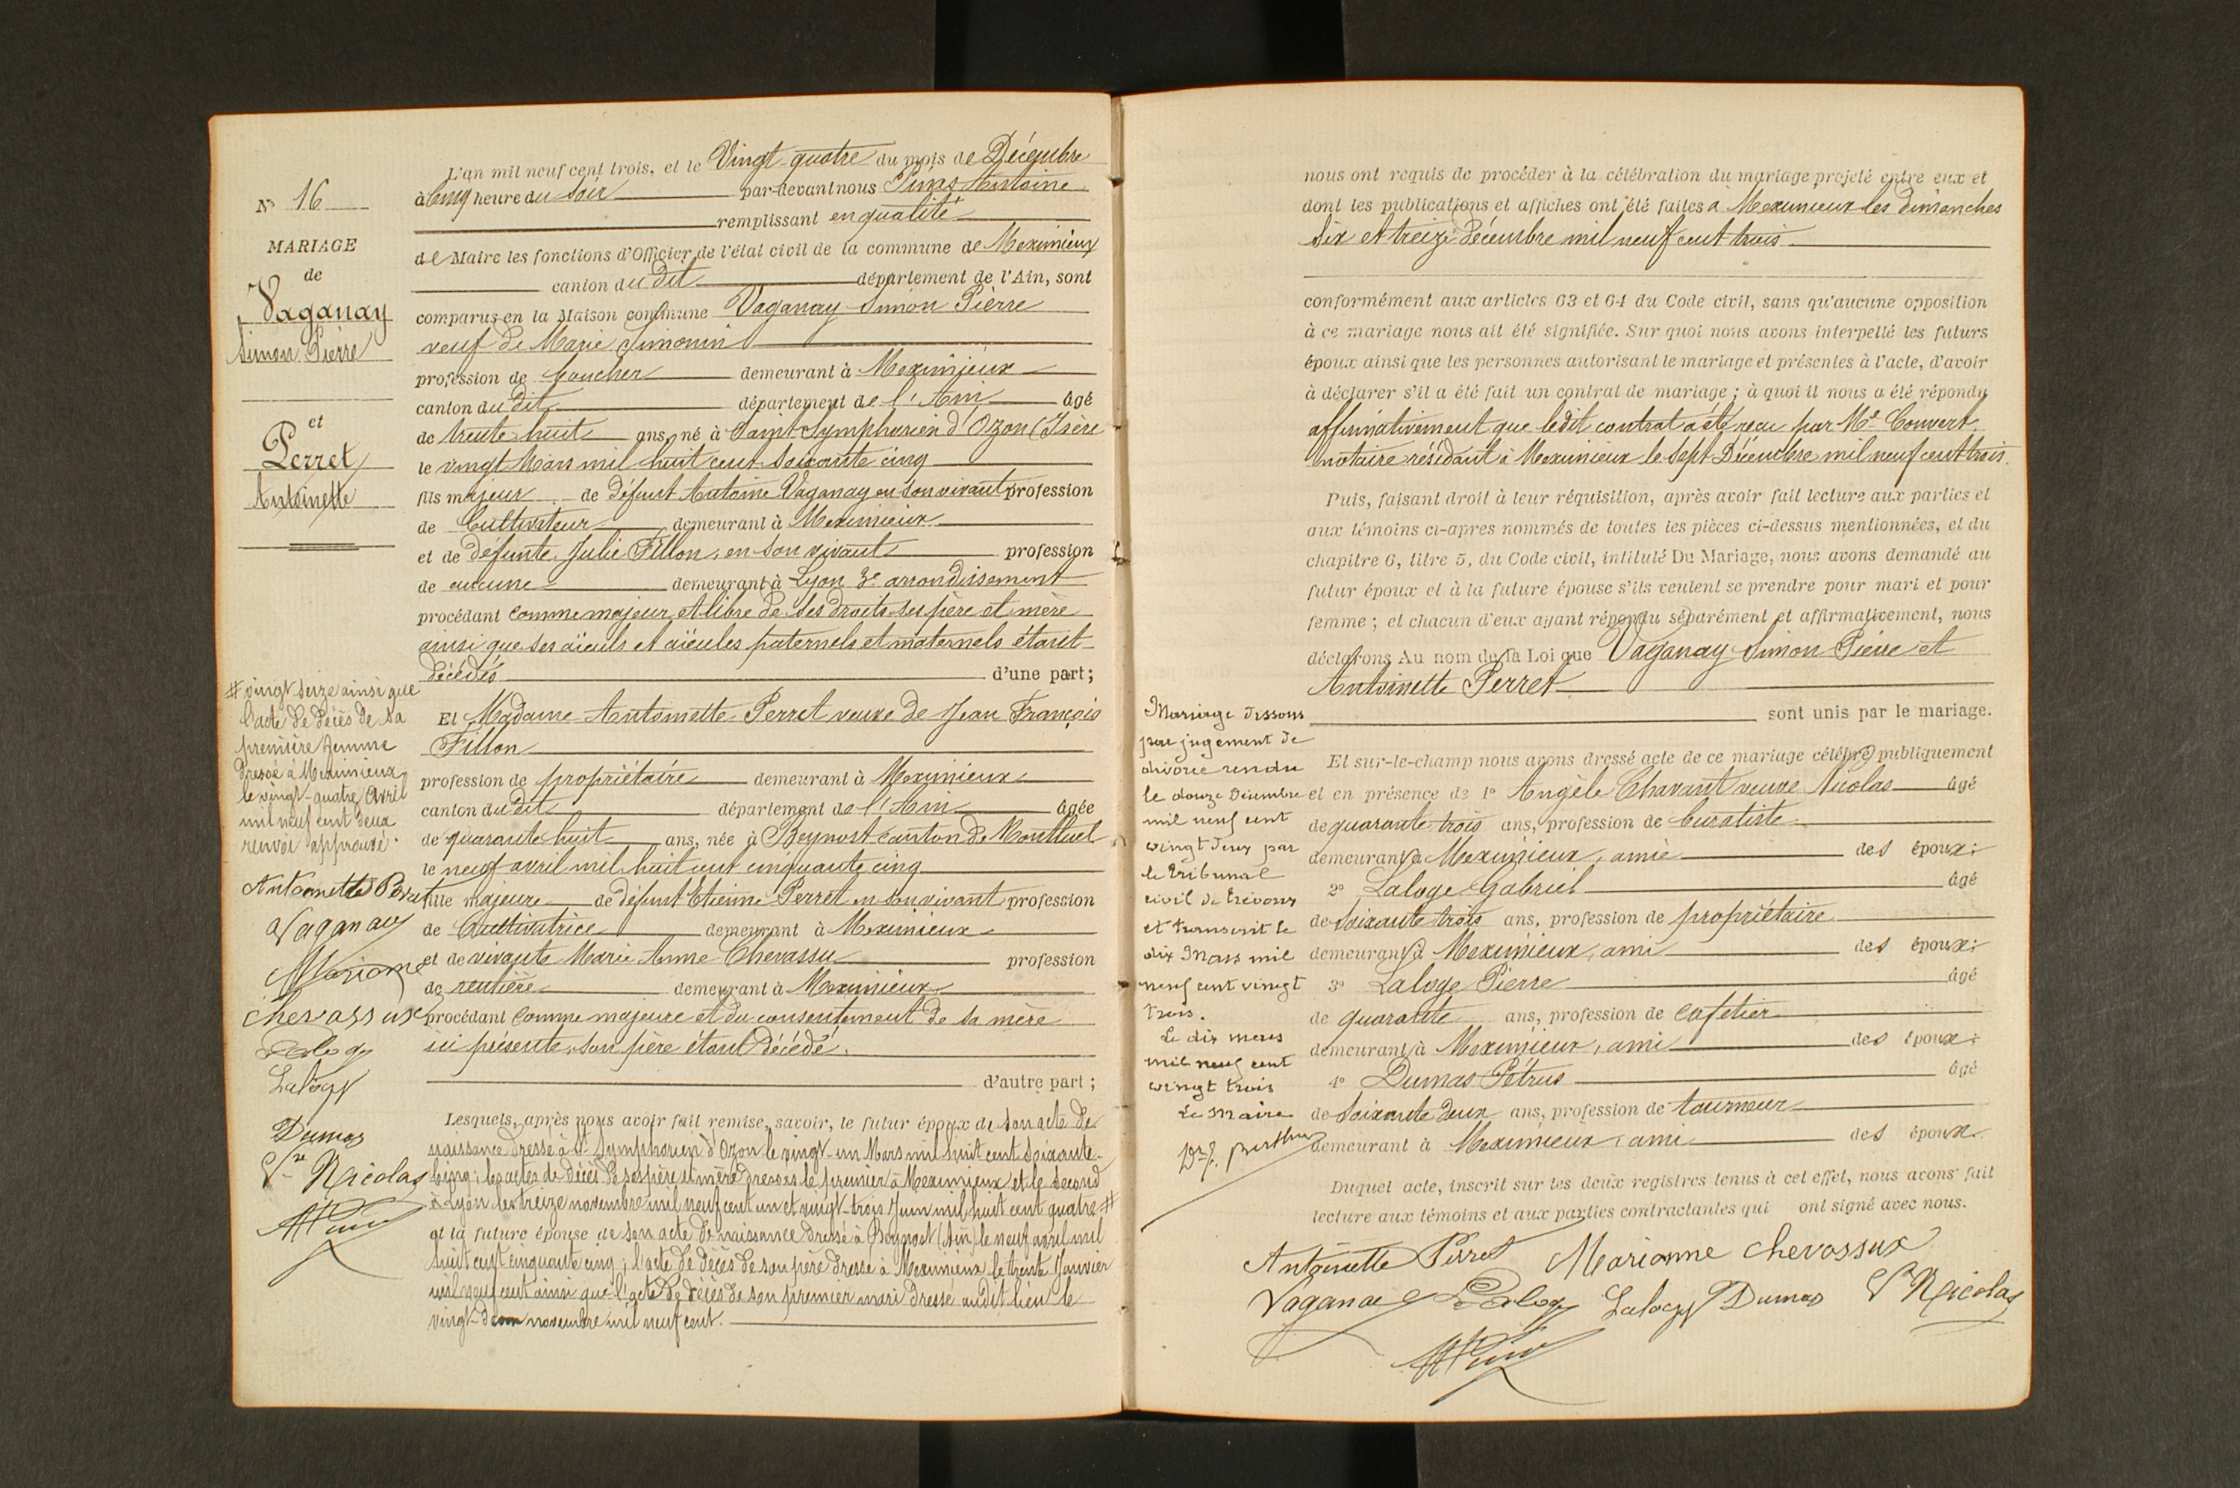 N° 16
MARIAGE
de
Vaganay
Simon Pierre
et
Perret
Antoinette
L'an mil neuf cent trois, et le Vingt-quatre du mois de Décembre
à Cinq heure du Soir par-devant nous Antoine
remplissant en qualité
de Maire les fonctions d'Officier de l'état civil de la commune de Meximieux
canton du dit département de l'Ain, sont
comparus en la Maison commune Vaganay Simon Pierre
veuf de Marie Simonin
profession de boucher demeurant à Meximieux
canton du dit département de l'Ain âgé
de trente-huit ans, né à Saint-Symphorien d'Ozon (Isère
le vingt Mars mil huit cent soixante cinq
fils majeur de défunt Antoine Vaganay en son vivant profession
de Cultivateur demeurant à Meximieux
et de défunte Julie Fillon, en son vivant profession
de aucune demeurant à Lyon 3e arrondissement
procédant comme majeur et libre de ses droits ses père et mère
ainsi que ses aïeuls et aïeules paternels et maternels étant
décédés d'une part;
Et Madame Antoinette Perret veuve de Jean François
Fillon
profession de propriétaire demeurant à Meximieux
canton du dit département de l'Ain âgée
de quarante huit ans, née à Beynost canton de Montluel
le neuf avril mil huit cent cinquante cinq
fille majeure de défunt Etienne Perret en son vivant profession
de Cultivatrice demeurant à Meximieux
et de vivante Marie Anne Chevassu profession
de rentière demeurant à Meximieux
procédant comme majeure et du consentement de sa mère
ici présente, son père étant décédé.
d'autre part;
Lesquels, après nous avoir fait remise, savoir, le futur époux de son acte de
naissance dressé à St Symphorien d'Ozon le vingt-un Mars mil huit cent soixante-
cinq; les actes de décès de ses père et mère dressés le premier à Meximieux et le second
à Lyon les treize novembre mil neuf cent un et vingt-trois Juin mil huit cent quatre #
et la future épouse de son acte de naissance dressé à Beynost (Ain) le neuf avril mil
huit cent cinquante cinq; l'acte de décès de son père dressé à Meximieux le trente Janvier
mil neuf cent ainsi que l'acte de décès de son premier mari dressé au dit lieu le
vingt- novembre mil neuf cent.
# vingt seize ainsi que
l'acte de décès de sa
première femme
dressé à Meximieux
le vingt-quatre Avril
mil neuf cent deux
renvoi approuvé.
Antoinette Perret
Vaganay
Marianne
chevassux
Laloge
Laloge
Dumas
Vve Nicolas
nous ont requis de procéder à la célébration du mariage projeté entre eux et
dont les publications et affiches ont été faites à Meximieux les dimanches
six et treize Décembre mil neuf cent trois
conformément aux articles 63 et 64 du Code civil, sans qu'aucune opposition
à ce mariage nous ait été signifiée. Sur quoi nous avons interpellé les futurs
époux ainsi que les personnes autorisant le mariage et présentes à l'acte, d'avoir
à déclarer s'il a été fait un contrat de mariage; à quoi il nous a été répondu
affirmativement que le dit contrat a été reçu par Me Convert,
notaire résidant à Meximieux le sept Décembre mil neuf cent trois.
Puis, faisant droit à leur réquisition, après avoir fait lecture aux parties et
aux témoins ci-apres nommés de toutes les pièces ci-dessus mentionnées, et du
chapitre 6, titre 5, du Code civil, intitulé Du Mariage, nous avons demandé au
futur époux et à la future épouse s'ils veulent se prendre pour mari et pour
femme; et chacun d'eux ayant répondu séparément et affirmativement, nous
déclarons Au nom de la Loi que Vaganay Simon Pierre et
Antoinette Perret
sont unis par le mariage.
Et sur-le-champ nous avons dressé acte de ce mariage célébré publiquement
et en présence de 1° Angèle Chavant veuve Nicolas âgé
de quarante-trois ans, profession de buraliste
demeurant à Meximieux, amie des époux;
2° Laloge Gabriel âgé
de soixante trois ans, profession de propriétaire
demeurant à Meximieux, ami des époux;
3° Laloge Pierre âgé
de quarante ans, profession de cafetier
demeurant à Meximieux, ami des époux;
4° Dumas Pétrus âgé
de soixante deux ans, profession de tourneur
demeurant à Meximieux, ami des époux.
Duquel acte, inscrit sur les deux registres tenus à cet effet, nous avons fait
lecture aux témoins et aux parties contractantes qui ont signé avec nous.
Mariage dissous
par jugement de
divorce rendu
le douze Décembre
mil neuf cent
vingt deux par
le tribunal
civil de Trévoux
et transcrit le
dix Mars mil
neuf cent vingt
trois.
Le dix mars
mil neuf cent
vingt trois
Le Maire
Antoinette Perret Marianne chevassux
Vaganay Laloge Laloge Dumas Vve Nicolas